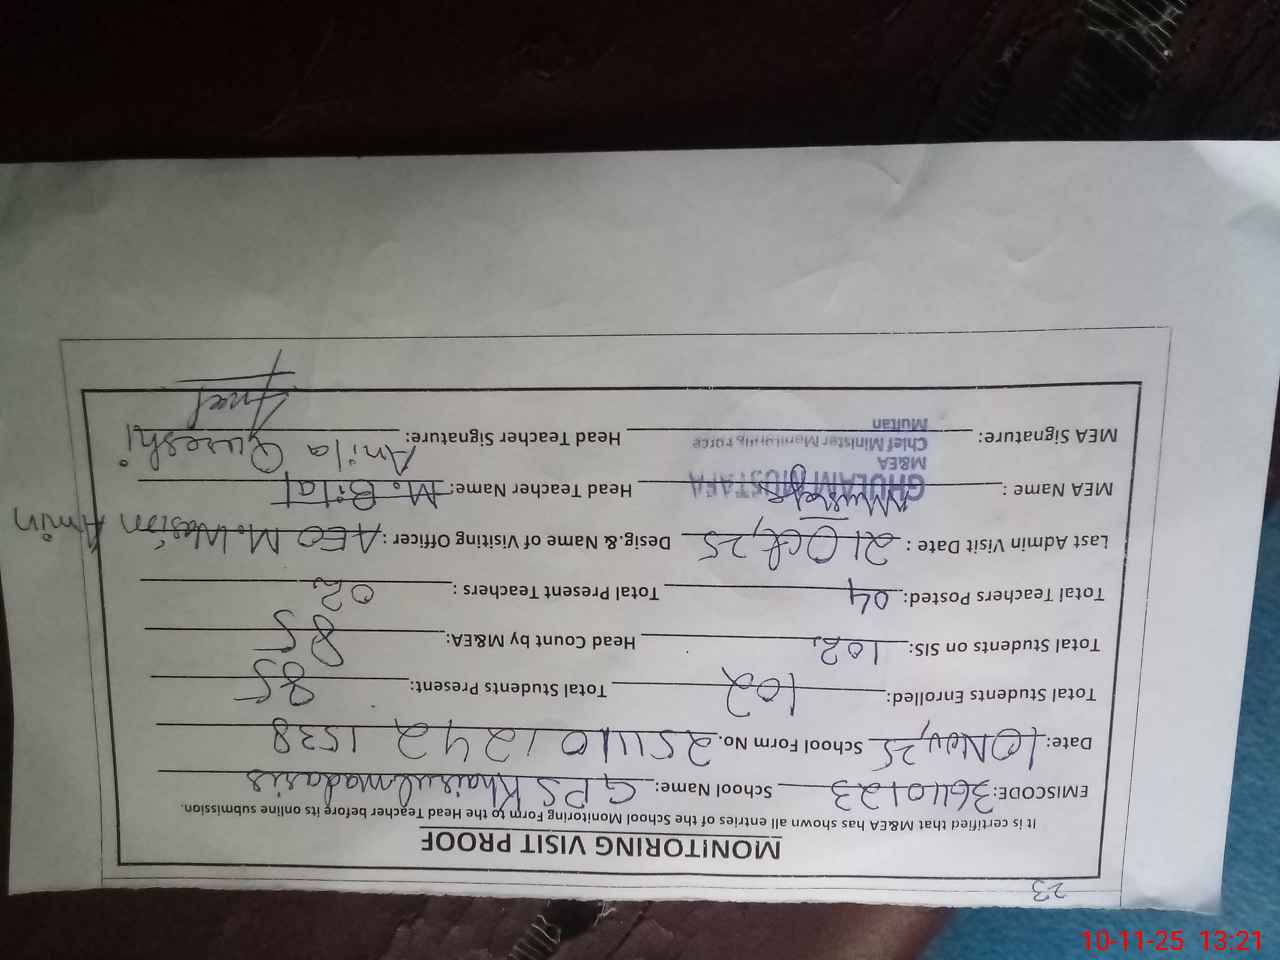 23
MONITORING VISIT PROOF
It is certified that M&EA has shown all entries of the School Monitoring Form to the Head Teacher before its online submission.
EMISCODE: 36110123 School Name: GPS Khairulmadaris
Date: 10 Nov, 25 School Form No. 25111012421538
Total Students Enrolled: 102 Total Students Present: 85
Total Students on SIS: 102 Head Count by M&EA: 85
Total Teachers Posted: 04 Total Present Teachers : 02
Last Admin Visit Date : 21 Oct, 25 Desig.&.Name of Visiting Officer : AEO M. Wasim Amin
MEA Name : GHULAM MUSTAFA Head Teacher Name: M. Bilal
M&EA
Anila Qureshi
MEA Signature: Chief Minister Monitoring Force Head Teacher Signature:
Multan
10-11-25 13:21